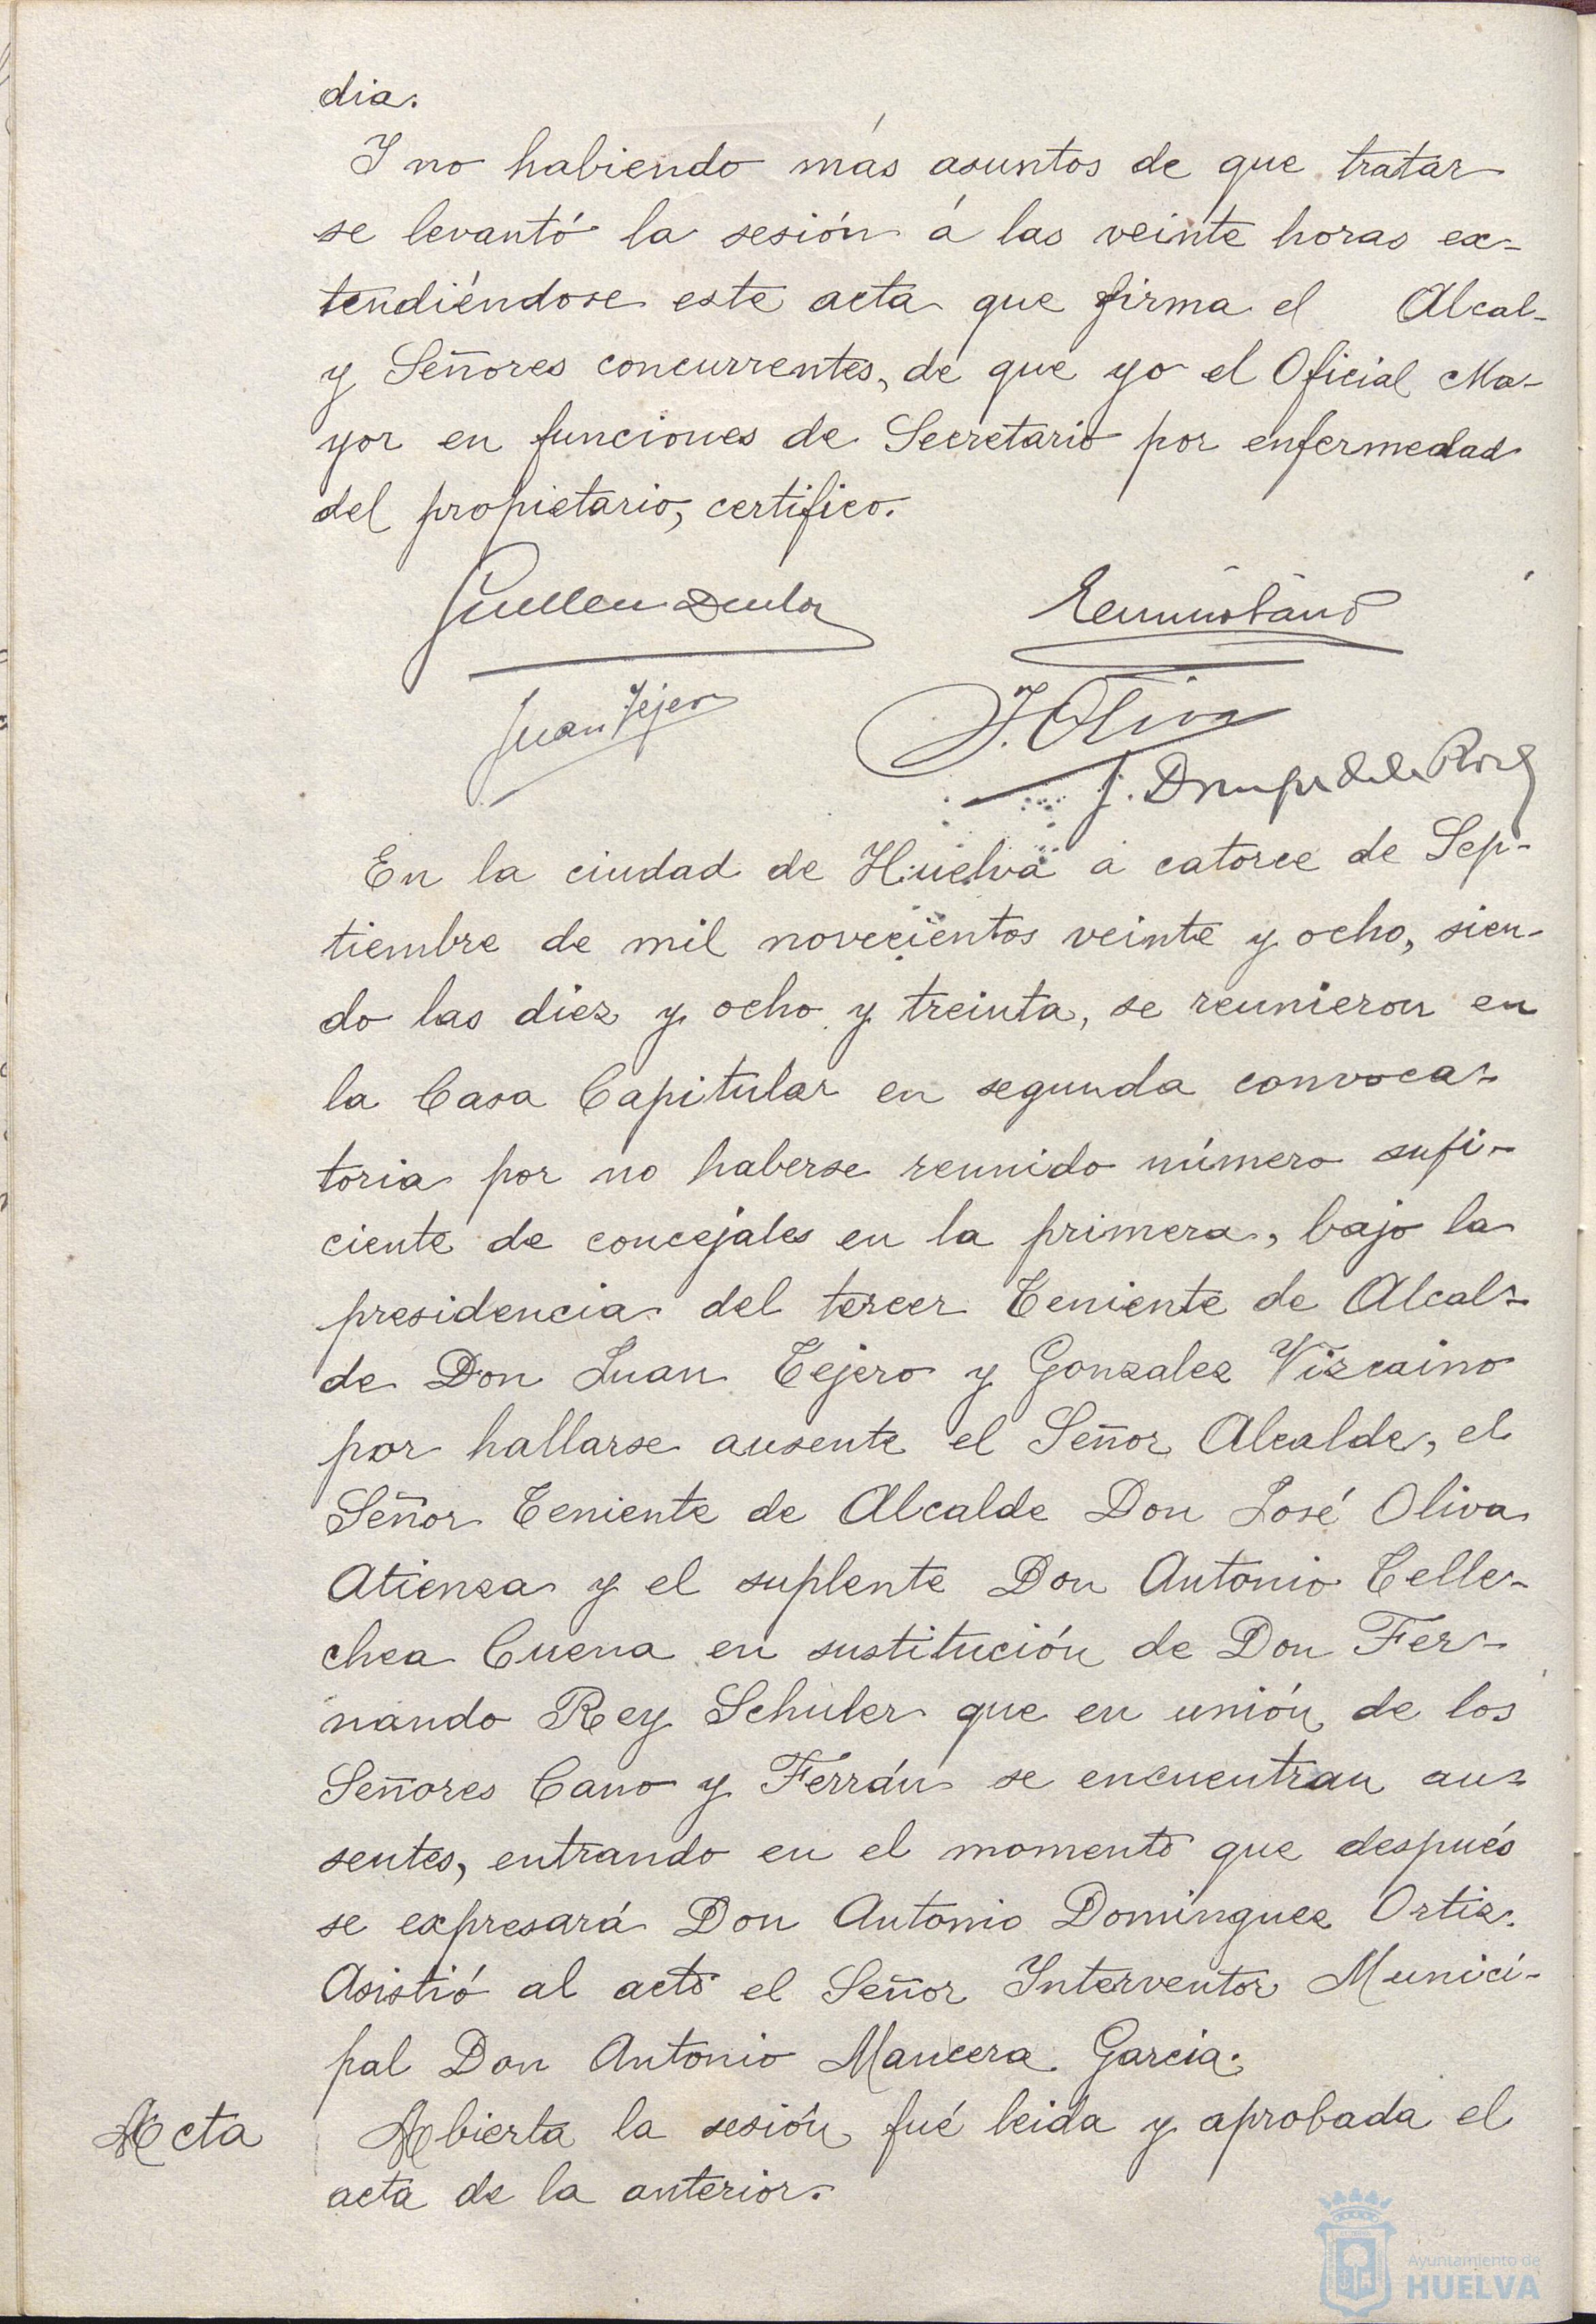 dia.
Y no habiendo más asuntos de que tratar
se levantó la sesión á las veinte horas ex-
tendiéndose este acta que firma el Alcal-
y Señores concurrentes, de que yo el Oficial Ma-
yor en funciones de Secretario por enfermedad
del propietario, certifico.
Juan Tejero
J. Oliva
J.
En la ciudad de Huelva a catorce de Sep-
tiembre de mil novecientos veinte y ocho, sien-
do las diez y ocho y treinta, se reunieron en
la Casa Capitular en segunda convoca-
toria por no haberse reunido número sufi-
ciente de concejales en la primera, bajo la
presidencia del tercer Teniente de Alcal-
de Don Juan Tejero y Gonzalez Vizcaino
por hallarse ausente el Señor Alcalde, el
Señor Teniente de Alcalde Don José Oliva
Atienza y el suplente Don Antonio Telle-
chea Cuena en sustitución de Don Fer-
nando Rey Schuler que en unión de los
Señores Cano y Ferrán se encuentran au-
sentes, entrando en el momento que después
se expresará Don Antonio Dominguez Ortiz.
Asistió al acto el Señor Interventor Munici-
pal Don Antonio Mancera Garcia.
Acta
Abierta la sesión fué leida y aprobada el
acta de la anterior.
Ayuntamiento de
HUELVA